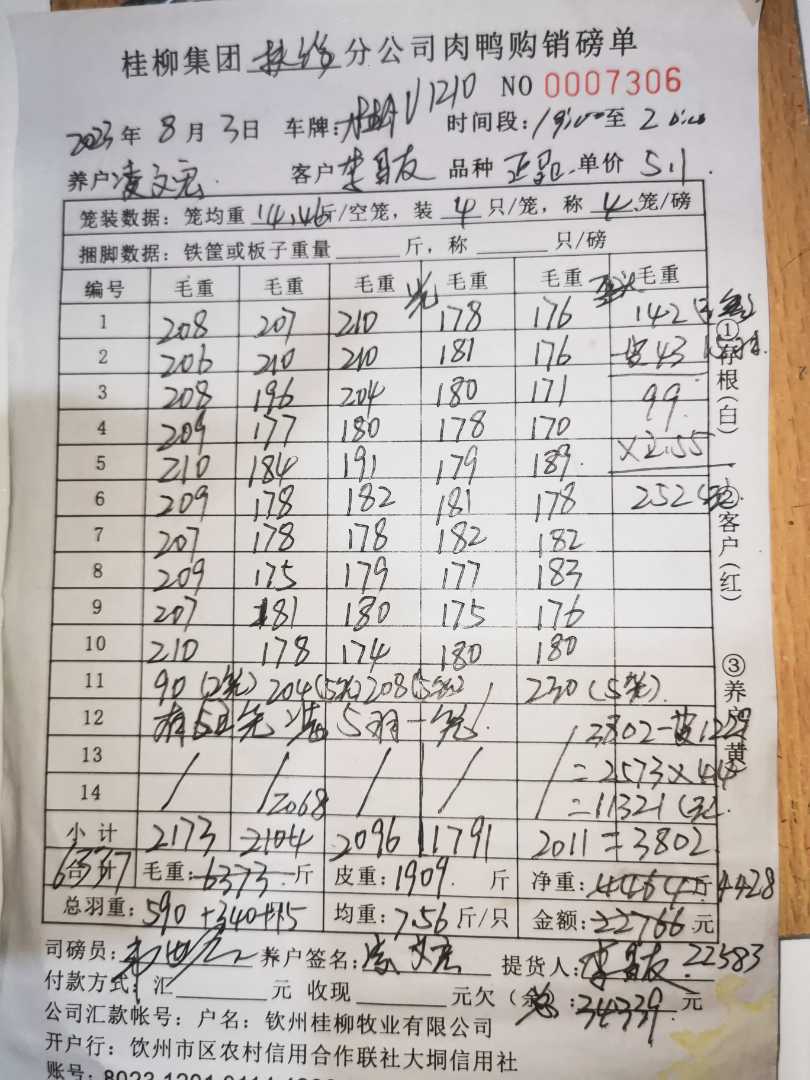 桂柳集团 分公司肉鸭购销磅单
NO 0007306
2023年 8 月 3 日 车牌: 1210 时间段: 19:00至
养户:凌文宏 客户 李昌友 品种 单价 5.1
笼装数据:笼均重 14.46斤/空笼,装 4 只/笼,称 4 笼/磅
捆脚数据:铁筐或板子重量 斤,称 只/磅
编号 毛重 毛重 毛重 毛重 毛重 毛重
1 208 207 210 178 176 142
2 206 210 210 181 176 43
3 208 196 204 180 171 99
4 209 177 180 178 170 ×2.55
5 210 184 191 179 189 252
6 209 178 182 181 178
7 207 178 178 182 182
8 209 175 179 177 183
9 207 181 180 175 176
10 210 178 174 180 180
11 90(2笼) 204(5笼) 208(5笼) / 230(5笼)
12 5 5羽一笼 / 3802-皮1229
13 / / / / =2573×44
14 / 2068 / / / =11321
小计 2173 2104 2096 1791 2011 =3802
6337 合计 毛重:6373斤 皮重:1909 斤 净重:4464斤 4428
总羽重:590+340+15 均重:7.56斤/只 金额:22766元
司磅员: 养户签名:凌文宏 提货人:李昌友 22583
付款方式:汇 元 收现 元欠(余):34339元
公司汇款帐号:户名:钦州桂柳牧业有限公司
开户行:饮州市区农村信用合作联社大垌信用社
账号:8023 1201 0114
①存根(白) ②客户(红) ③养户(黄)